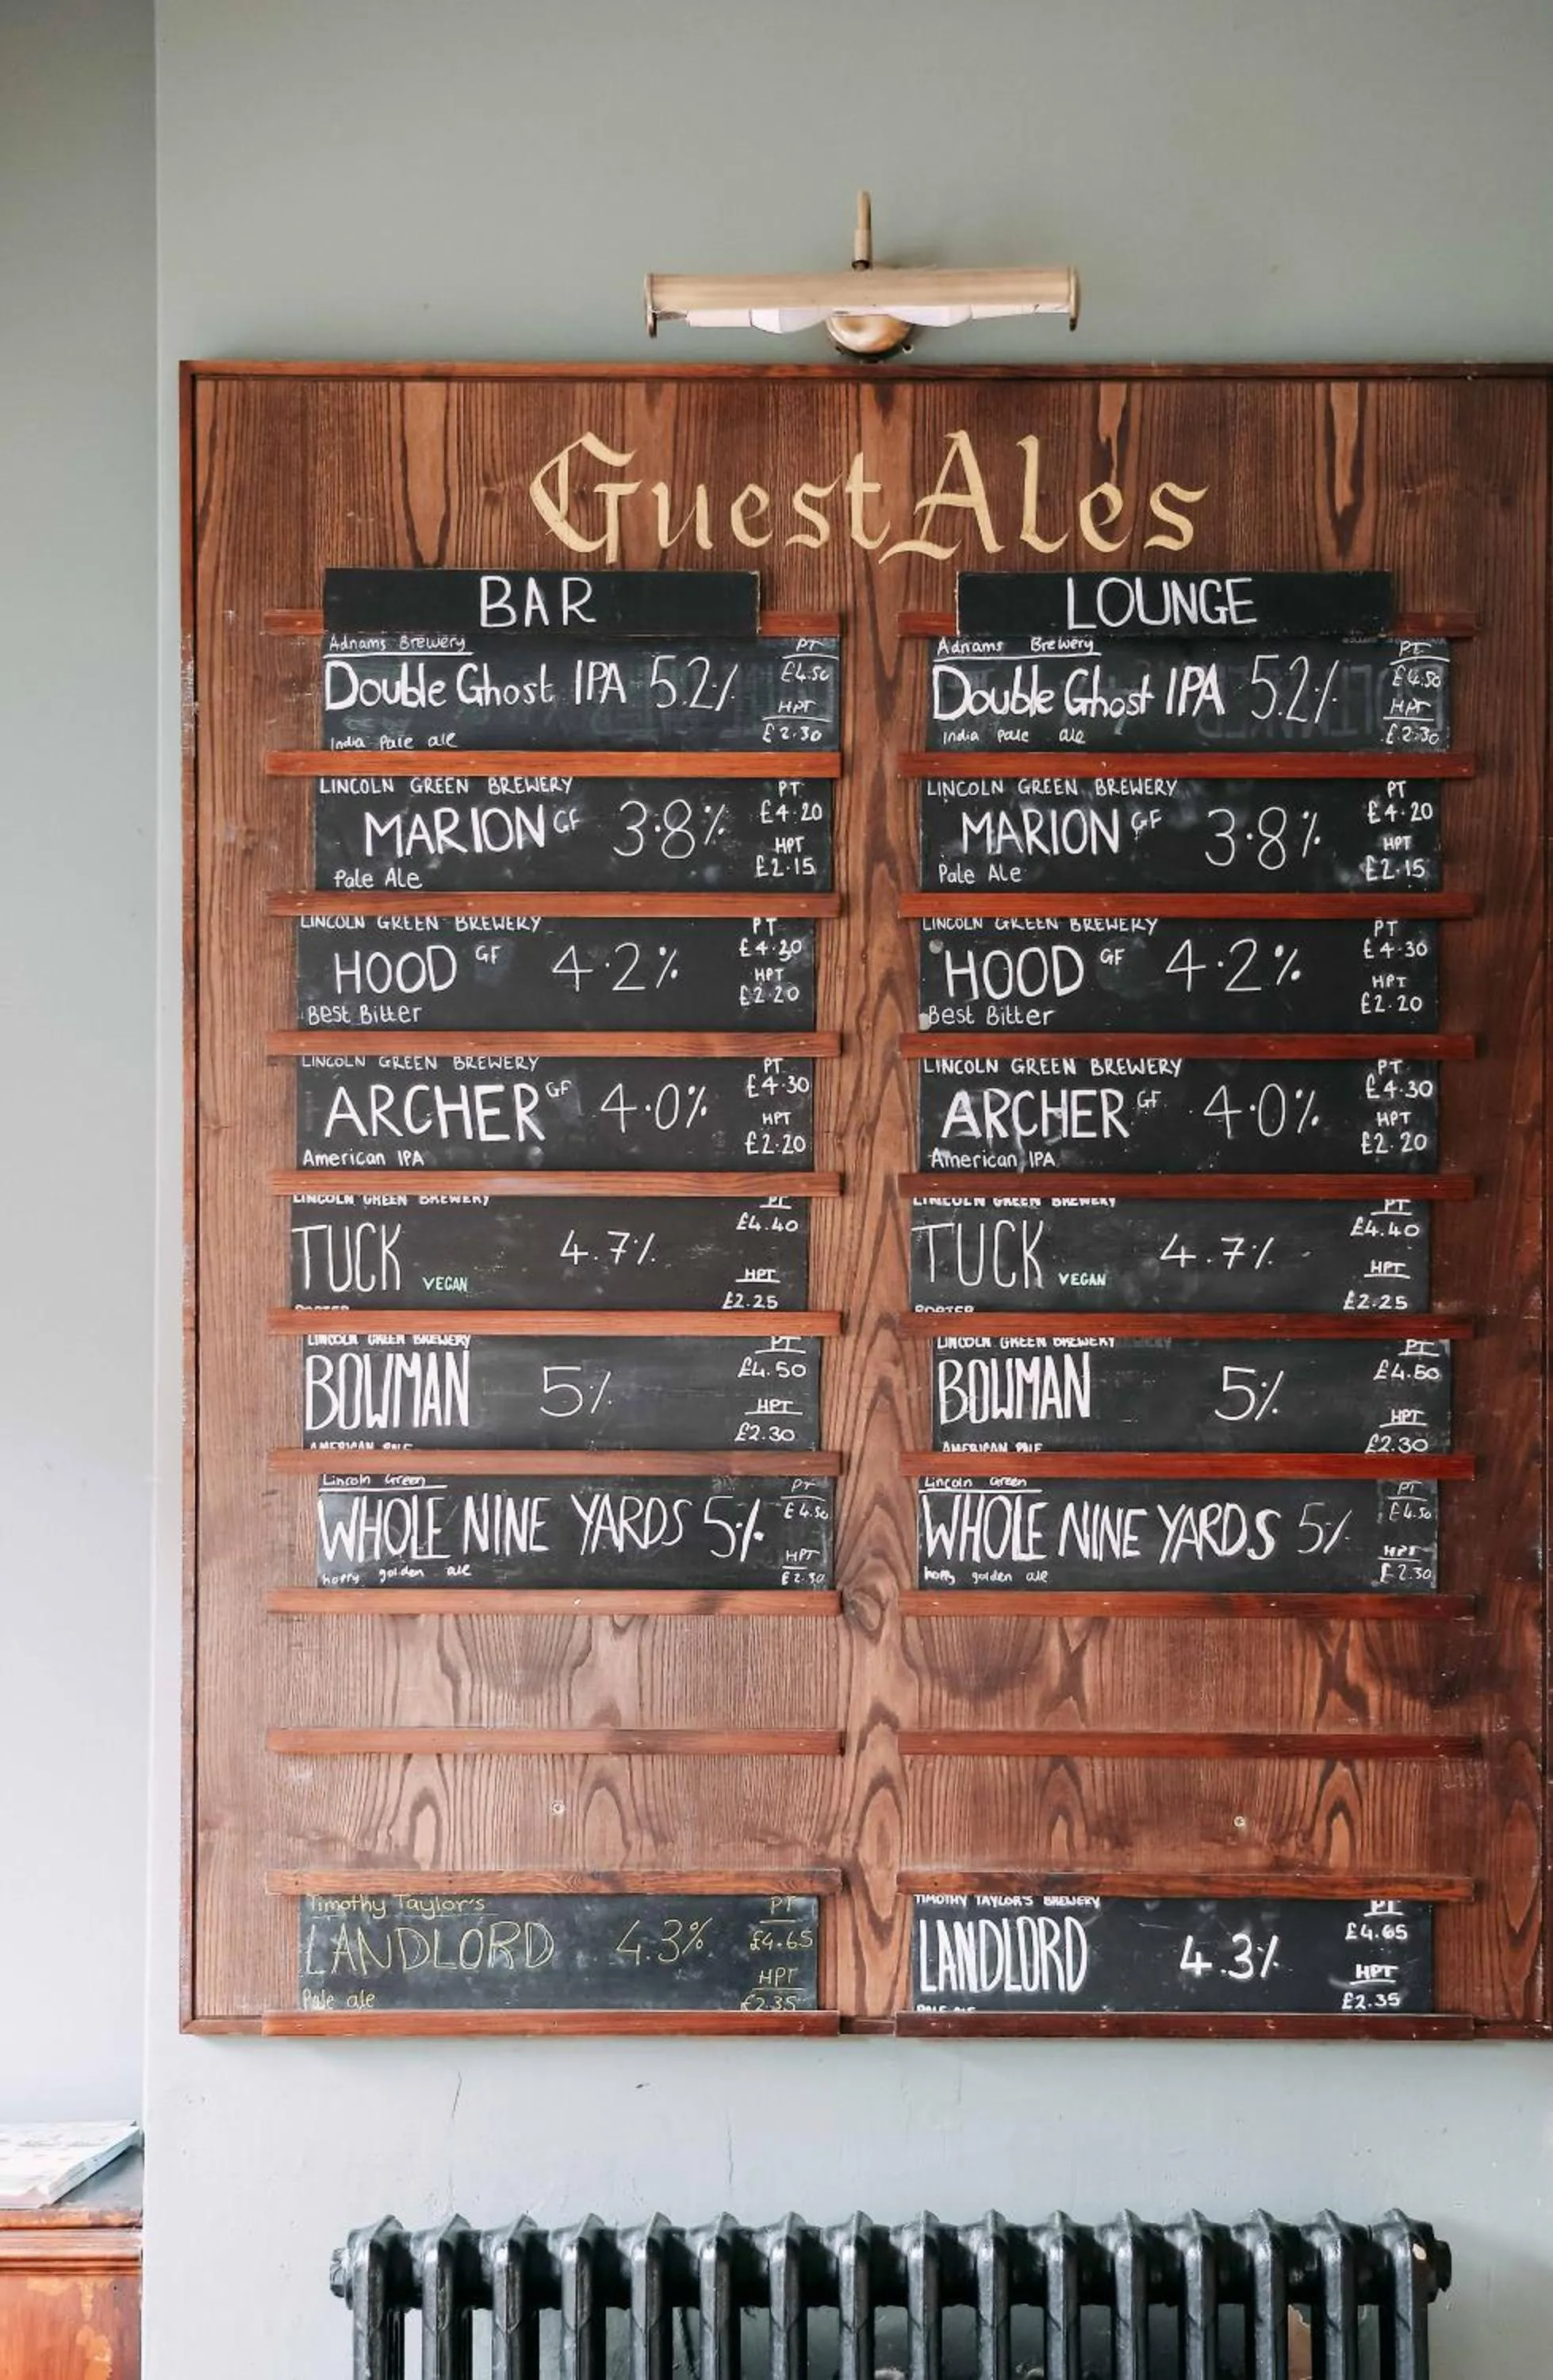 Guest Ales
BAR
Adnams Brewery
Double Ghost IPA 5.2%
India Pale ale
PT
£4.50
HPT
£2.30
LINCOLN GREEN BREWERY
MARION GF 3.8%
Pale Ale
PT
£4.20
HPT
£2.15
LINCOLN GREEN BREWERY
HOOD GF 4.2%
Best Bitter
PT
£4.30
HPT
£2.20
LINCOLN GREEN BREWERY
ARCHER GF 4.0%
American IPA
PT
£4.30
HPT
£2.20
LINCOLN GREEN BREWERY
TUCK VEGAN 4.7%
PORTER
PT
£4.40
HPT
£2.25
LINCOLN GREEN BREWERY
BOWMAN 5%
AMERICAN PALE
PT
£4.50
HPT
£2.30
Lincoln Green
WHOLE NINE YARDS 5%
hoppy golden ale
PT
£4.50
HPT
£2.30
Timothy Taylor's
LANDLORD 4.3%
Pale ale
PT
£4.65
HPT
£2.35
LOUNGE
Adnams Brewery
Double Ghost IPA 5.2%
India Pale ale
PT
£4.50
HPT
£2.30
LINCOLN GREEN BREWERY
MARION GF 3.8%
Pale Ale
PT
£4.20
HPT
£2.15
LINCOLN GREEN BREWERY
HOOD GF 4.2%
Best Bitter
PT
£4.30
HPT
£2.20
LINCOLN GREEN BREWERY
ARCHER GF 4.0%
American IPA
PT
£4.30
HPT
£2.20
LINCOLN GREEN BREWERY
TUCK VEGAN 4.7%
PORTER
PT
£4.40
HPT
£2.25
LINCOLN GREEN BREWERY
BOWMAN 5%
AMERICAN PALE
PT
£4.50
HPT
£2.30
Lincoln Green
WHOLE NINE YARDS 5%
hoppy golden ale
PT
£4.50
HPT
£2.30
TIMOTHY TAYLOR'S BREWERY
LANDLORD 4.3%
PALE ALE
PT
£4.65
HPT
£2.35